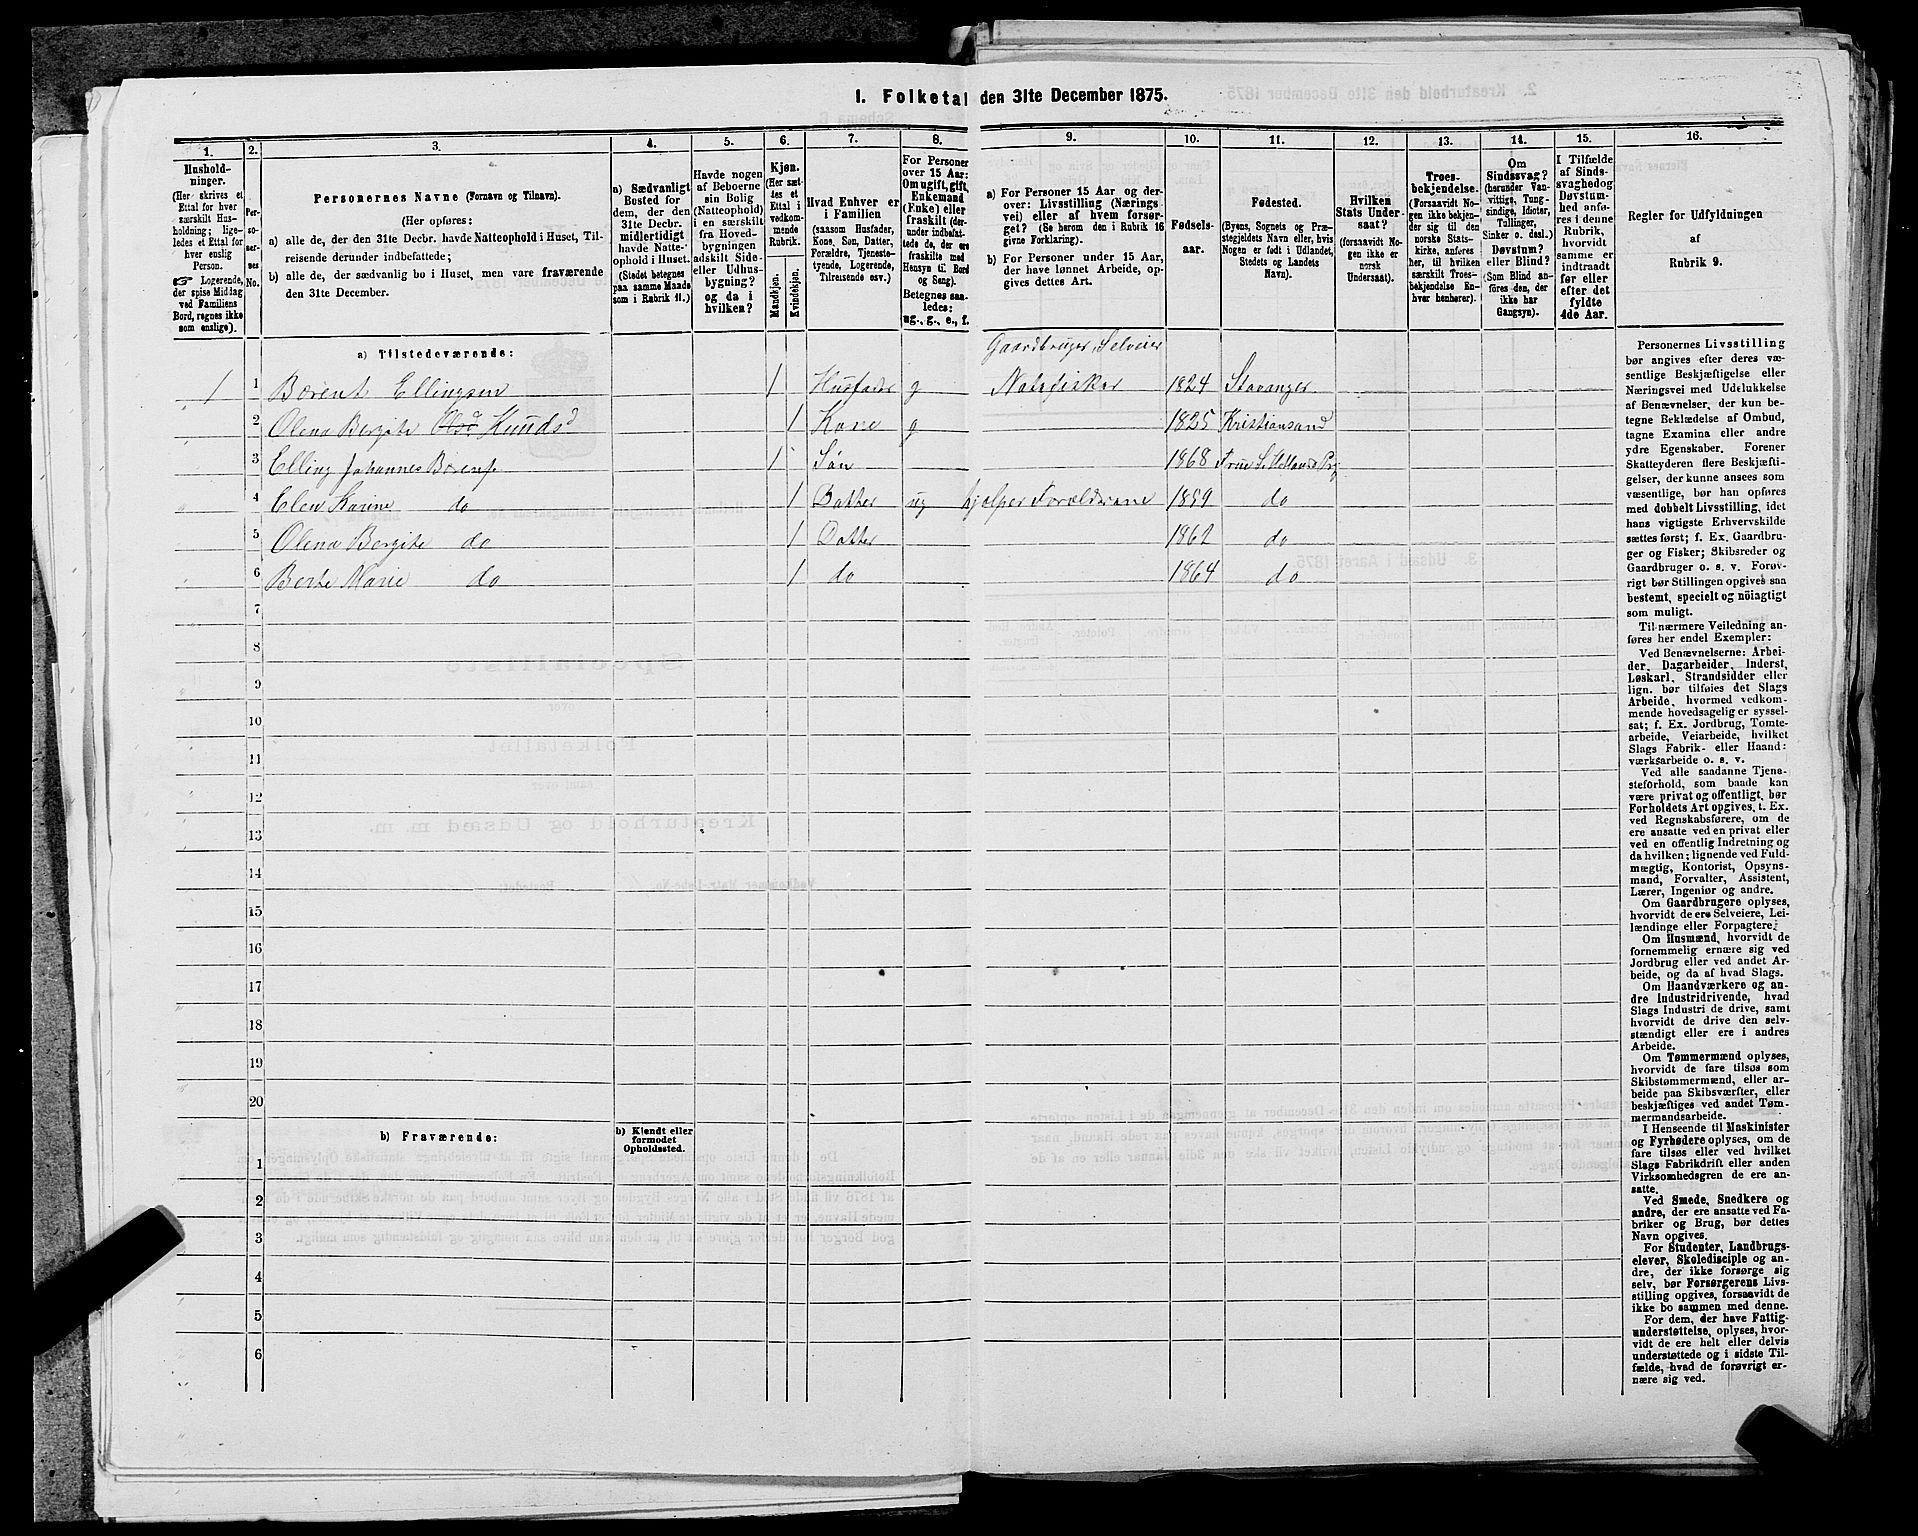 I. Folketal den 31te December 1875.
1. 2. 3. 4. 5. 6. 7. 8. 9. 10. 11. 12. 13. 14. 15. 16.
Husholdninger.
(Her skrives et
Ettal for hver
særskilt Husholdning;
ligeledes et Ettal for
hver enslig
Person.
☞ Logerende,
der spise Middag
ved Familiens
Bord, regnes ikke
som enslige).
Personernes
No.
Personernes Navne (Fornavn og Tilnavn).
(Her opføres:
a) alle de, der den 31te Decbr. havde Natteophold i Huset, Tilreisende
derunder indbefattede;
b) alle de, der sædvanlig bo i Huset, men vare fraværende
den 31te December.
a) Sædvanligt
Bosted for
dem, der den
31te Decbr.
midlertidigt
havde Natteophold
i Huset.
(Stedet betegnes
paa samme Maade
som i Rubrik 11.)
Havde nogen
af Beboerne
sin Bolig
(Natteophold)
i en særskilt
fra Hovedbygningen
adskilt Side-
eller Udhusbygning?
og da i
hvilken?
Kjøn.
(Her sættes
et
Ettal i
vedkommende
Rubrik.
Mandkjøn.
Kvindekjøn.
Hvad Enhver er
i Familien
(saasom Husfader,
Kone, Søn, Datter,
Forældre, Tjenestetyende,
Logerende,
Tilreisende osv.)
For Personer
over 15 Aar:
Om ugift, gift,
Enkemand
(Enke) eller
fraskilt (derunder
indbefattede
de, der ere
fraskilte med
Hensyn til Bord
og Seng).
Betegnes saaledes:
ug., g., e., f.
a) For Personer 15 Aar og derover:
Livsstilling (Næringsvei)
eller af hvem forsørget?
(Se herom den i Rubrik 16
givne Forklaring).
b) For Personer under 15 Aar,
der have lønnet Arbeide, opgives
dettes Art.
Fødselsaar.
Fødested.
(Byens, Sognets og Præstegjeldets
Navn eller, hvis
Nogen er født i Udlandet,
Stedets og Landets
Navn).
Hvilken
Stats Undersaat?
(forsaavidt Nogen
ikke er
norsk
Undersaat).
Troesbekjendelse.
(Forsaavidt Nogen
ikke bekjender
sig til den
norske Statskirke,
anføres
her, til hvilken
særskilt Troesbekjendelse
Enhver
henhører).
Om
Sindssvag?
(herunder Vanvittige,
Tungsindige,
Idioter,
Tullinger,
Sinker o. desl.)
Døvstum?
eller Blind?
(Som Blind anføres
den, der
ikke har
Gangsyn).
I Tilfælde
af Sindssvaghed
og
Døvstumhed
anføres
i denne
Rubrik,
hvorvidt
samme er
indtraadt
før eller
efter det
fyldte
4de Aar.
Regler for Udfyldningen
af
Rubrik 9.
a) Tilstedeværende:
Gaardbruger, Selveier
1 1 Børent Ellingsen 1 Husfader g Notefisker 1824 Stavanger
2 Olena Bergite Olsd Knudsd 1 Kone g 1825 Kristiansand
3 Elling Johannes Børents 1 Søn 1868
4 Elen Karine do 1 Datter ug hjælper Forældrene 1859 do
5 Olena Bergite do 1 Datter 1862 do
6 Berte Marie do 1 do 1864 do
7
8
9
10
11
12
13
14
15
16
17
18
19
20
b) Fraværende:
b) Kjendt eller
formodet
Opholdssted.
1
2
3
4
5
6
Personernes Livsstilling
bør angives efter deres væsentlige
Beskjæftigelse eller
Næringsvei med Udelukkelse
af Benævnelser, der kun betegne
Beklædelse af Ombud,
tagne Examina eller andre
ydre Egenskaber. Forener
Skatteyderen flere Beskjæftigelser,
der kunne ansees som
væsentlige, bør han opføres
med dobbelt Livsstilling, idet
hans vigtigste Erhvervskilde
sættes først; f. Ex. Gaardbruger
og Fisker; Skibsreder og
Gaardbruger o. s. v. Forøvrigt
bør Stillingen opgives saa
bestemt, specielt og nöiagtigt
som muligt.
Til nærmere Veiledning anføres
her endel Exempler:
Ved Benævnelserne: Arbeider,
Dagarbeider, Inderst,
Løskarl, Strandsidder eller
lign. bør tilføies det Slags
Arbeide, hvormed vedkommende
hovedsagelig er sysselsat;
f. Ex. Jordbrug, Tomtearbeide,
Veiarbeide, hvilket
Slags Fabrik- eller Haandværksarbeide
o. s. v.
Ved alle saadanne Tjenesteforhold,
som baade kan
være privat og offentligt, bør
Forholdets Art opgives, t. Ex.
ved Regnskabsførere, om de
ere ansatte ved en privat eller
ved en offentlig Indretning og
da hvilken; lignende ved Fuldmægtig,
Kontorist, Opsynsmand,
Forvalter, Assistent,
Lærer, Ingeniør og andre.
Om Gaardbrugere oplyses,
hvorvidt de ere Selveiere, Leilændinge
eller Forpagtere.
Om Husmænd, hvorvidt de
fornemmelig ernære sig ved
Jordbrug eller ved andet Arbeide,
og da af hvad Slags.
Om Haandværkere og andre
Industridrivende, hvad
Slags Industri de drive, samt
hvorvidt de drive den selvstændigt
eller ere i andres
Arbeide.
Om Tømmermænd oplyses,
hvorvidt de fare tilsøs som
Skibstømmermænd, eller arbeide
paa Skibsværfter, eller
beskjæftiges ved andet Tømmermandsarbeide.
I Henseende til Maskinister
og Fyrbødere oplyses, om de
fare tilsøs eller ved hvilket
Slags Fabrikdrift eller anden
Virksomhedsgren de ere ansatte.
Ved Smede, Snedkere og
andre, der ere ansatte ved Fabriker
og Brug, bør dettes
Navn opgives.
For Studenter, Landbrugselever,
Skoledisciple og andre,
der ikke forsørge sig
selv, bør Forsørgerens Livsstilling
opgives, forsaavidt de
ikke bo sammen med denne.
For dem, der have Fattigunderstøttelse,
oplyses, hvorvidt
de ere helt eller delvis
understøttede og i sidste Tilfælde,
hvad de forøvrigt ernære
sig ved.